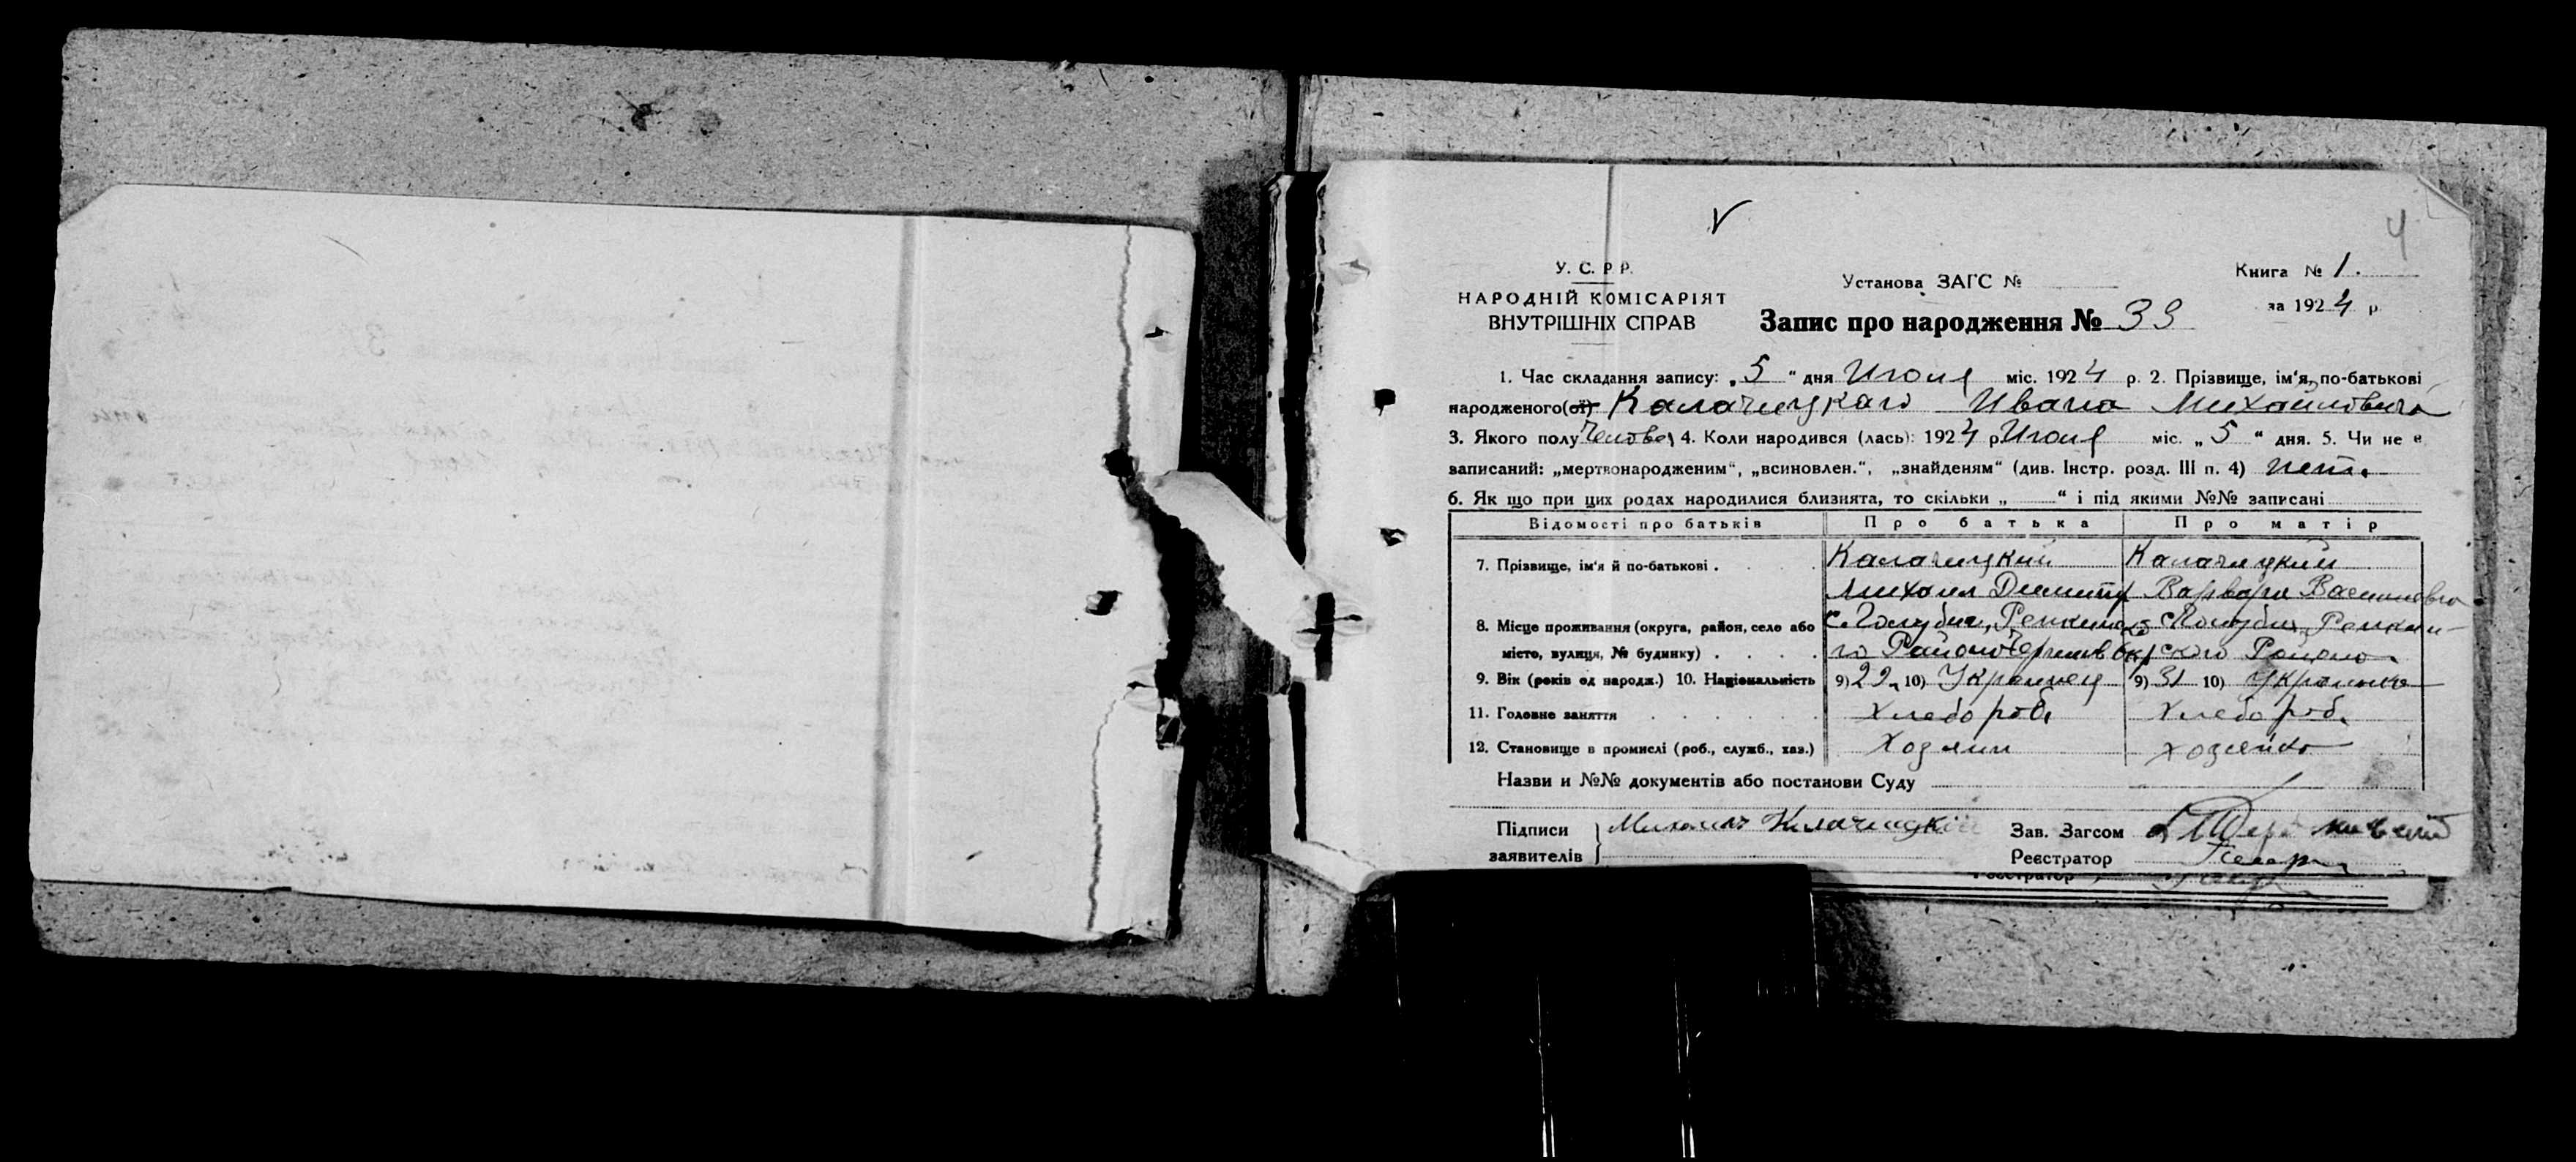 4
У. С. Р. Р.
НАРОДНІЙ КОМІСАРІЯТ
ВНУТРІШНІХ СПРАВ
Установа ЗАГС №
Запис про народження № 39
Книга № 1.
за 1924 р
1. Час складання запису: „5“ дня Июня міс. 1924 р. 2. Прізвище, ім'я, по-батькові
народженого(ої) Калачицкаго Ивана Михайловича
3. Якого полу 4. Коли народився (лась): 1924 р. Июня міс. „5“ дня. 5. Чи не є
записаний: „мертвонародженим“, „всиновлен.“, „знайденям“ (див. Інстр. розд. III п. 4) нет.
6. Як що при цих родах народилися близнята, то скільки „ “ і під якими №№ записані
Відомості про батьків Про батька Про матір
7. Прізвище, ім'я й по-батькові . Калачицкий Калачицкий
Михаил Дмитр Варвара Васильевна
8. Місце проживання (округа, район, село або
місто, вулиця, № будинку) . го Района ского Района
9. Вік (років од народж.) 10. Національність 9) 29 10) Украинец 9) 31 10) Украинка
11. Головне заняття хлебороб. хлебороб.
12. Становище в промислі (роб., служб., хаз.) Хозяин хозяйка
Назви и №№ документів або постанови Суду
Підписи Михаилъ Калачицкій Зав. Загсом
заявителів Реєстратор
Реєстратор